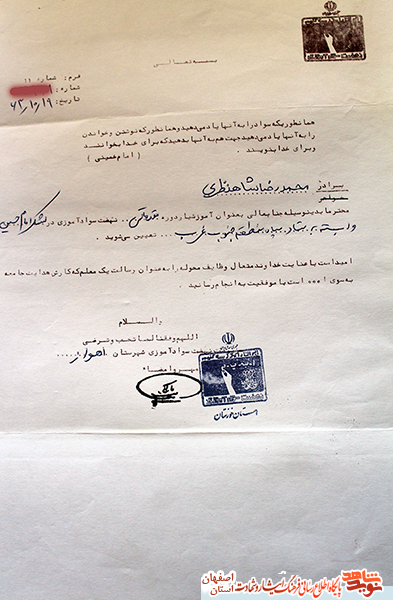 بسمه تعالی
فرم : شماره ۱۱
شماره :
تاریخ : ۶۲/۱۰/۱۹
همانطوریکه سواد را به آنها یاد میدهید و همانطور که نوشتن و خواندن
را به آنها یاد میدهید جهت هم به آنها بدهید که برای خدا بخوانند
و برای خدا بنویسند . ( امام خمینی )
برادر محمدرضا شاهنظری
خواهر
محترما بدینوسیله جنابعالی بعنوان آموزشیار دوره مقدماتی نهضت سوادآموزی در لشکر امام حسین
وابسته به ستاد سپاه منطقه جنوب غرب ... تعیین می شوید .
امید است با عنایت خداوند متعال وظایف محوله را به عنوان رسالت یک معلم که کارش هدایت جامعه
به سوی ا... است با موفقیت به انجام برسانید .
والسلام
اللهم وفقنا لما تحب و ترضی
نهضت سوادآموزی شهرستان اهواز ....
مهر و امضاء
استان خوزستان
نوید شاهد
پایگاه اطلاع رسانی فرهنگ ایثار و شهادت
استان اصفهان